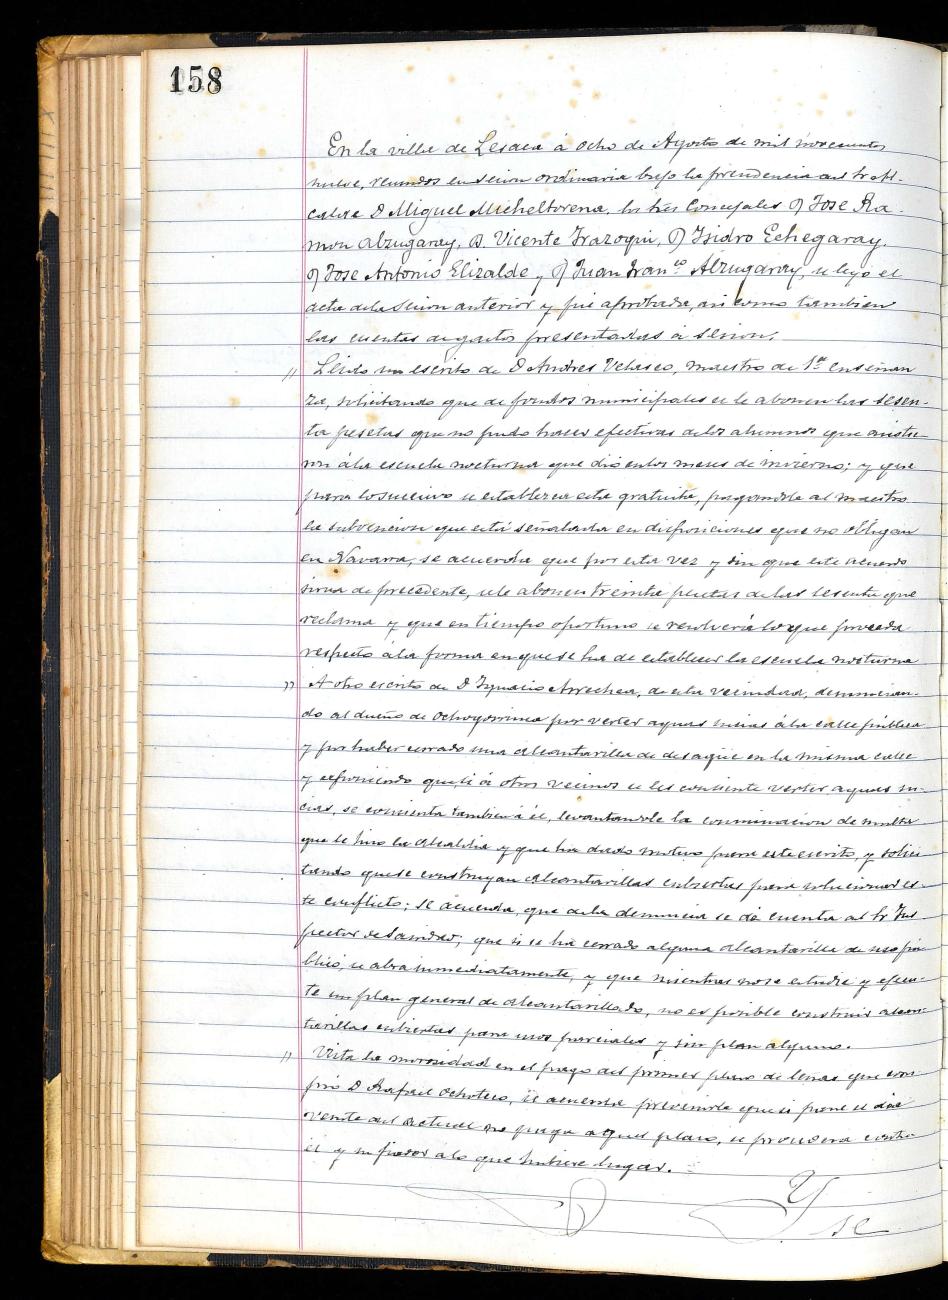 158
En la villa de Lesaca á ocho de Agosto de mil novecientos
nueve, reunidos en sesion ordinaria bajo la presidencia del Sr Al-
calde D Miguel Micheltorena, los Sres Concejales D Jose Ra-
mon Alzugaray, D. Vicente Irazoqui, D Isidro Echegaray,
D Jose Antonio Elizalde y D Juan Franco Alzugaray, se leyo el
acta de la sesion anterior y fué aprobada, asi como tambien
las cuentas de gastos presentadas á sesion.
" Leido un escrito de D Andres Velasco, maestro de 1ª enseñan
za, solicitando que de fondos municipales se le abonen las sesen-
ta pesetas que no pudo hacer efectivas de los alumnos que asistie-
ron á la escuela nocturna que dió en los meses de invierno; y que
para lo sucesivo se establezca esta gratuita, pagandole al maestro
la subvencion que está señalada en disposiciones que no obligan
en Navarra, se acuerda que por esta vez y sin que este acuerdo
sirva de precedente, se le abonen treinta pesetas de las sesenta que
reclama y que en tiempo oportuno se resolverá lo que proceda
respecto á la forma en que se ha de establecer la escuela nocturna
" A otro escrito de D Ignacio Arrechea, de esta vecindad, denuncian-
do al dueño de por verter aguas sucias á la calle pública
y por haber cerrado una alcantarilla de desagüe en la misma calle
y exponiendo que si á otros vecinos se les consiente verter aguas su-
cias, se consienta tambien á él, levantandole la conminacion de multa
que le hizo la Alcaldia y que ha dado motivo para este escrito, y solici
tando que se construyan alcantarillas cubiertas para solucionar es-
te conflicto; se acuerda, que de la denuncia se dé cuenta al Sr Ins
pector de Sanidad; que si se ha cerrado alguna alcantarilla de uso pú-
blico, se abra inmediatamente, y que mientras no se estudie y ejecu-
te un plan general de alcantarillado, no es posible construir alcan-
tarillas cubiertas para usos parciales y sin plan alguno.
" Vista la morosidad en el pago del primer plazo de leñas que com-
pró D Rafael Ochoteco, se acuerda prevenirle que si para el dia
veinte del actual no paga aquel plazo, se procederá contra
él y su fiador á lo que hubiere lugar.